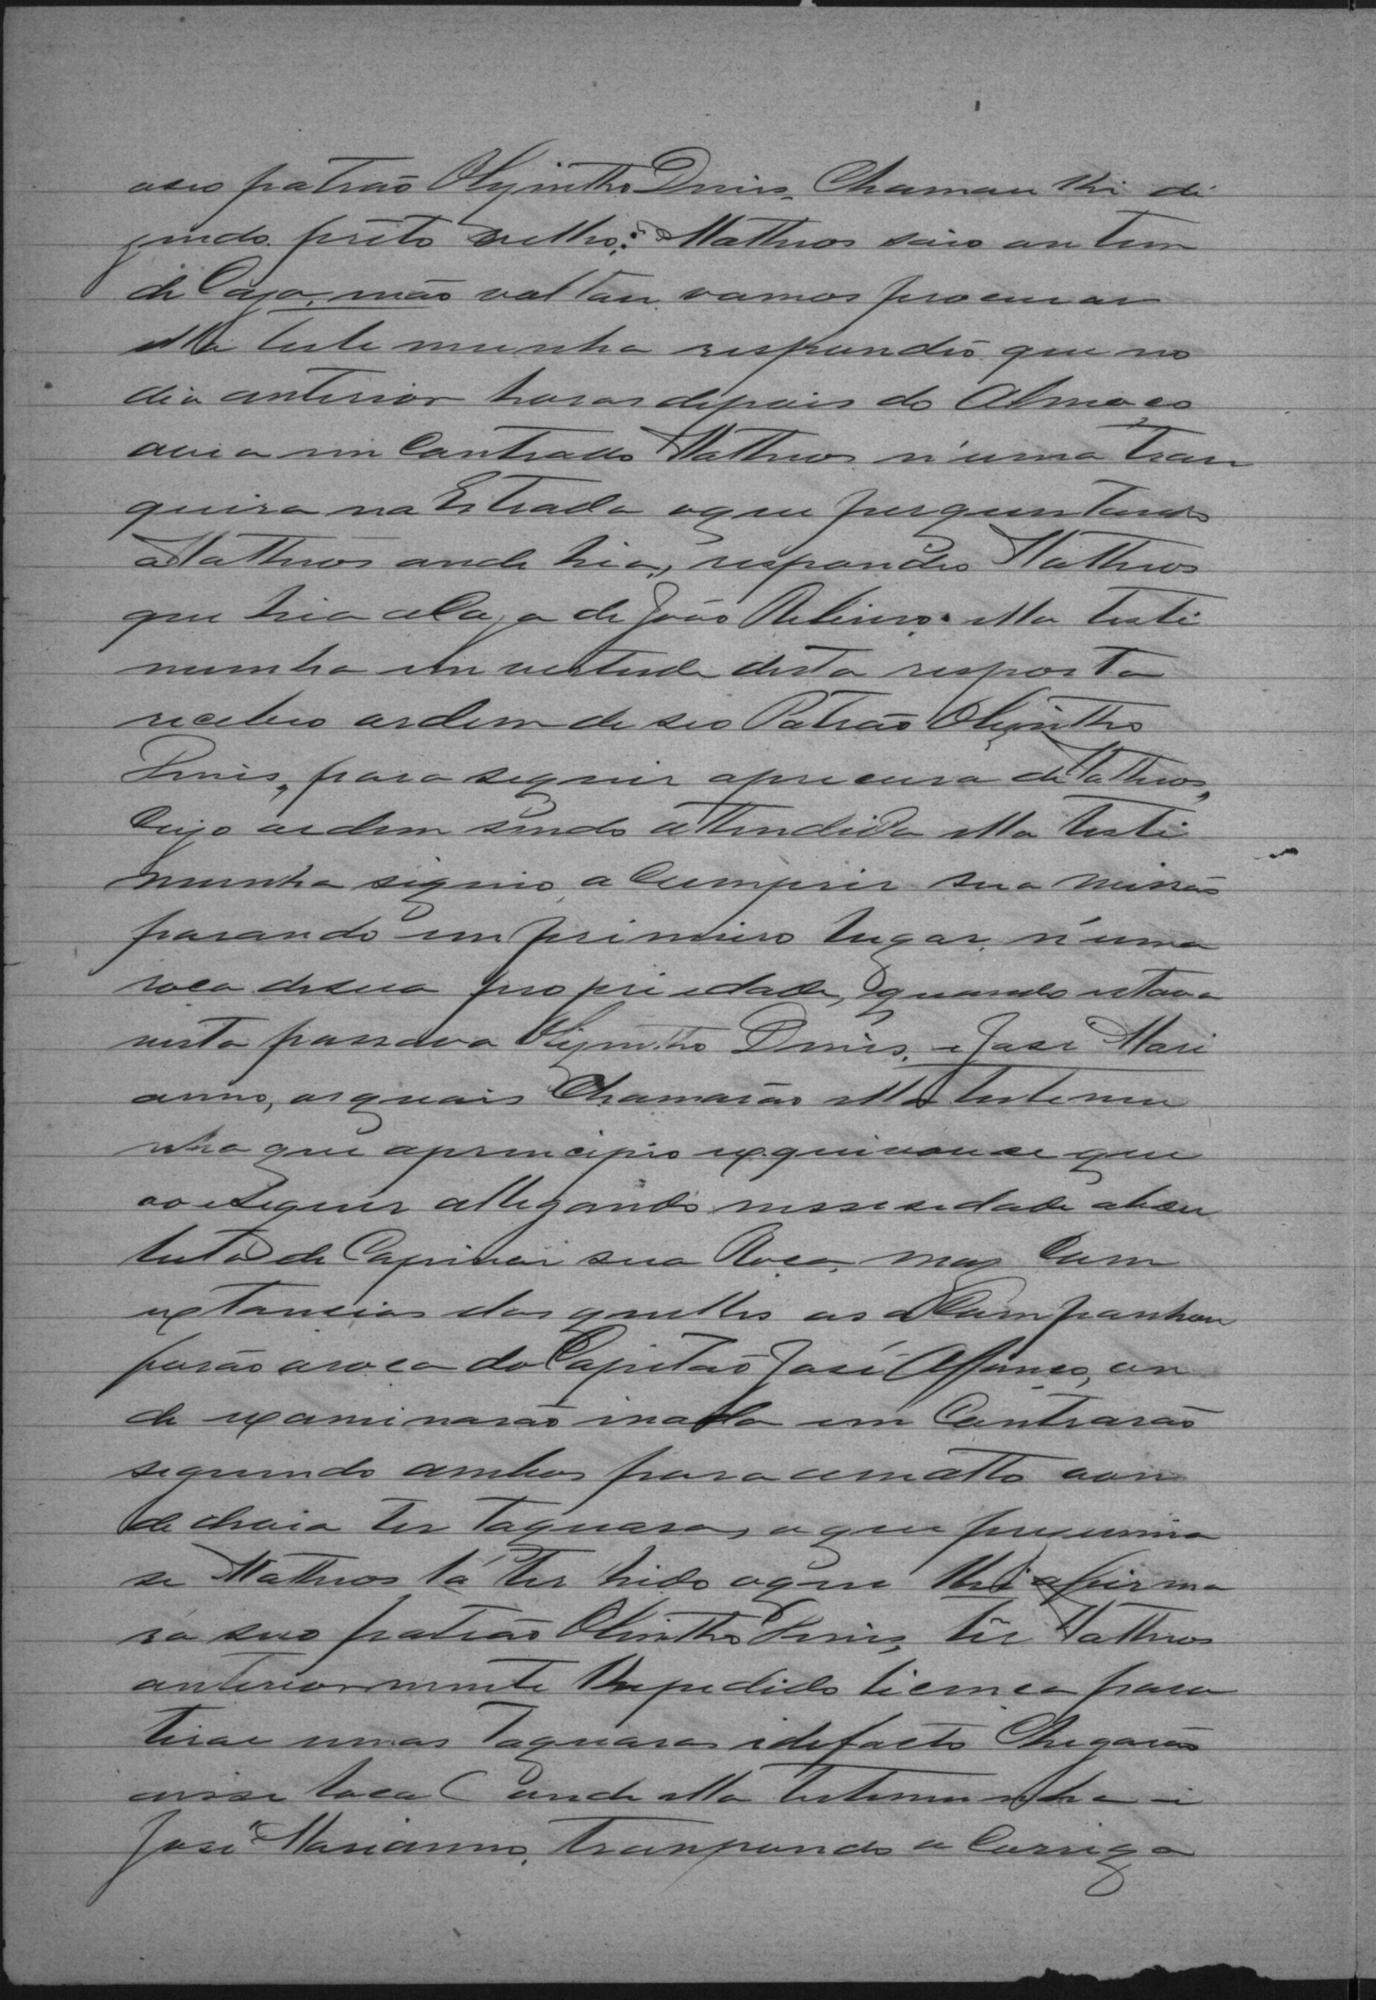 a seo patrão Olyintho Diniz, Chamou lhe di
zendo preto velho: Matheos saio on tem
de Caza, não voltou vamos procurar
ella teste munha respondeo que no
dia anterior horas depois do Almoço
avia in Contrado Matheos n'uma tran
queira na Estrada o que perguntando
a Matheos onde hia, respondeo Matheos
que hia a Caza de João Ribeiro. ella teste
munha em vertude desta resposta
recebeo ordem de seo Patrão Olyintho
Diniz, para seguir a procura de Matheos,
Cujo ordem sendo attendida ella teste
munha siguio, a Cumprir sua missão
parando em primeiro lugar n'uma
roca de sua propriedade, quando estava
nesta passava Olyintho Diniz, e José Mari
anno, os quais Chamarão ella testemu
nha que a principio exquivou se que
ao seguir allegando nessesedade absu
luta de Capinar sua Roca, mas Com
extancias da quelles os aCompanhou
forão a roca do Capitão José Affonço, on
de examinarão e nada em Contrarão
seguindo ambos para um atto aon
de dezia ter taquaras, o que presumia
se Matheos lá ter hido o que lhe afirma
ra seo patrão Olintho Diniz, ter Matheos
anteriormente lhe pedido licença para
tirar umas Taquaras e de facto Chegarão
nesse loca l onde ella testemunha e
José Marianno, transpondo o Corrigo